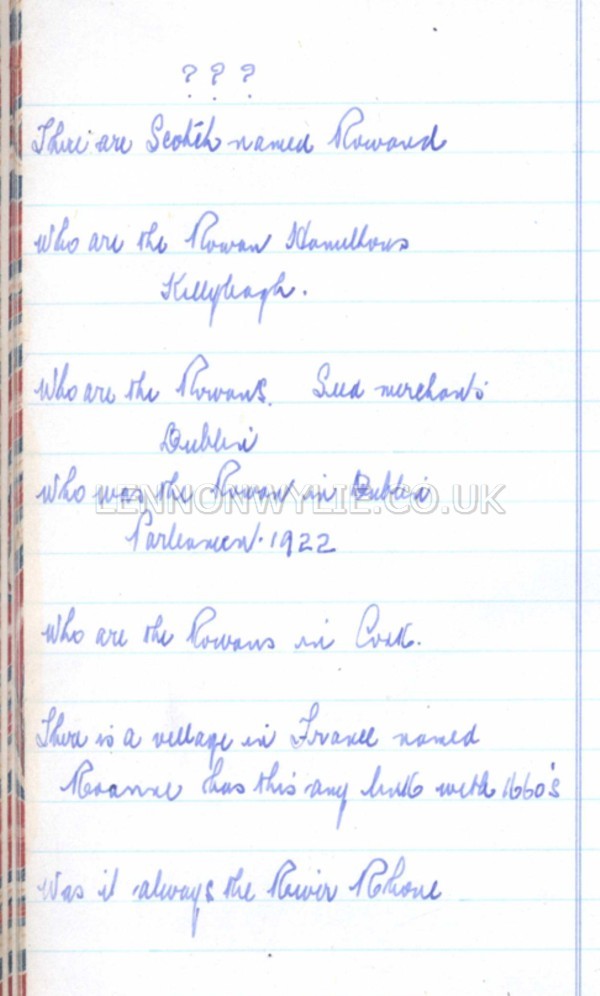 ? ? ?
There are Scotch named Rowand
Who are the Rowan Hamiltons
Killyleagh.
Who are the Rowans. Seed merchants
Dublin
Who was the Rowan in Dublin
LENNONWYLIE.CO.UK
Parliamen. 1922
Who are the Rowans in Cork.
There is a village in France named
Roanne has this any link with 1660's
Was it always the River Rhone